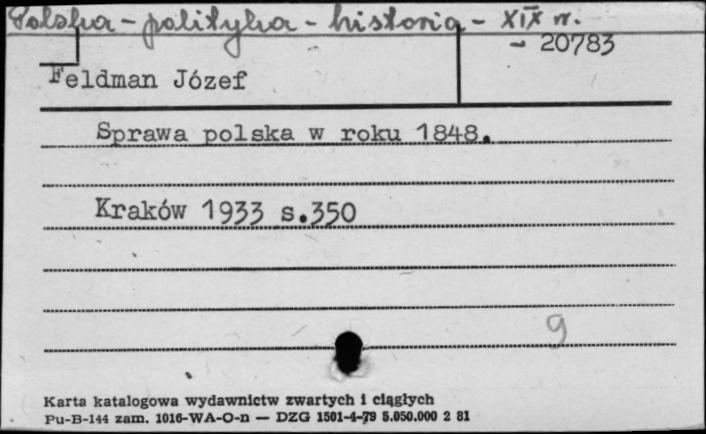 Polska - polityka - historia - XIX w.
- 20783
Feldman Józef
Sprawa polska w roku 1848.
Kraków 1933 s.350
9
Karta katalogowa wydawnictw zwartych i ciągłych
Pu-B-144 zam. 1016-WA-O-n — DZG 1501-4-79 5.050.000 2 81